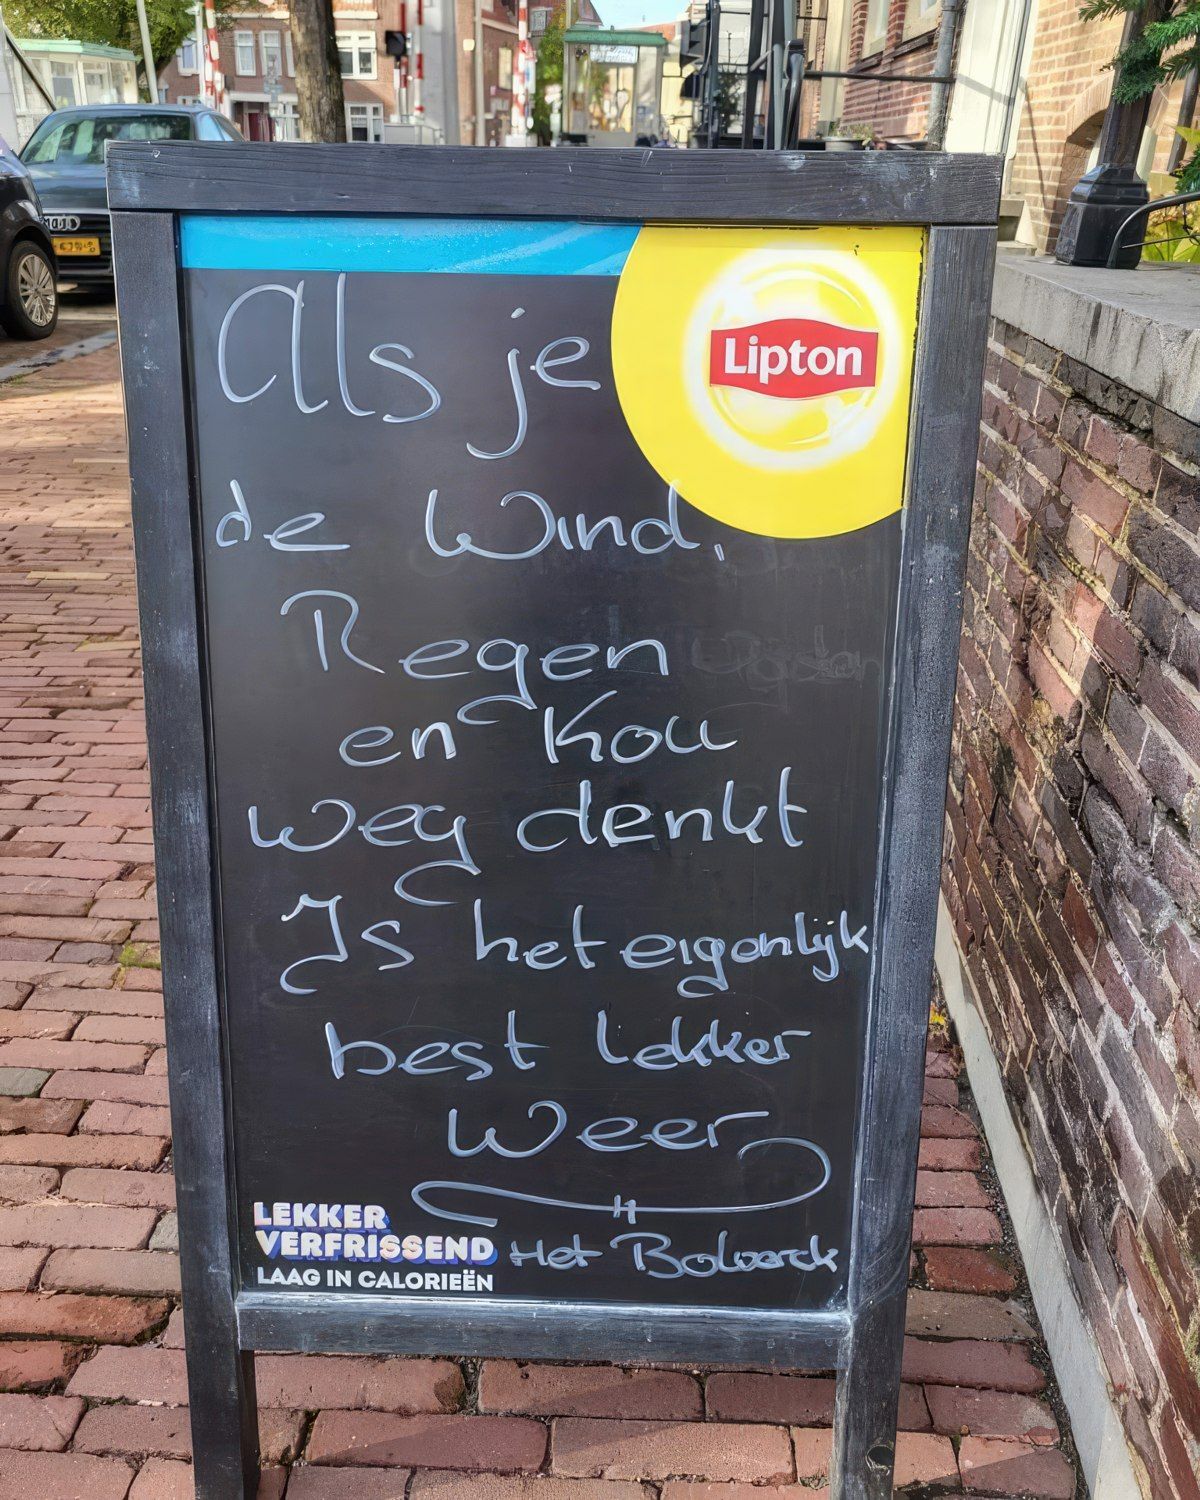 Als je
Lipton
de Wind,
Regen
en Kou
weg denkt
Is het eigenlijk
best lekker
Weer
LEKKER
VERFRISSEND
LAAG IN CALORIEËN
Het Bolwerck